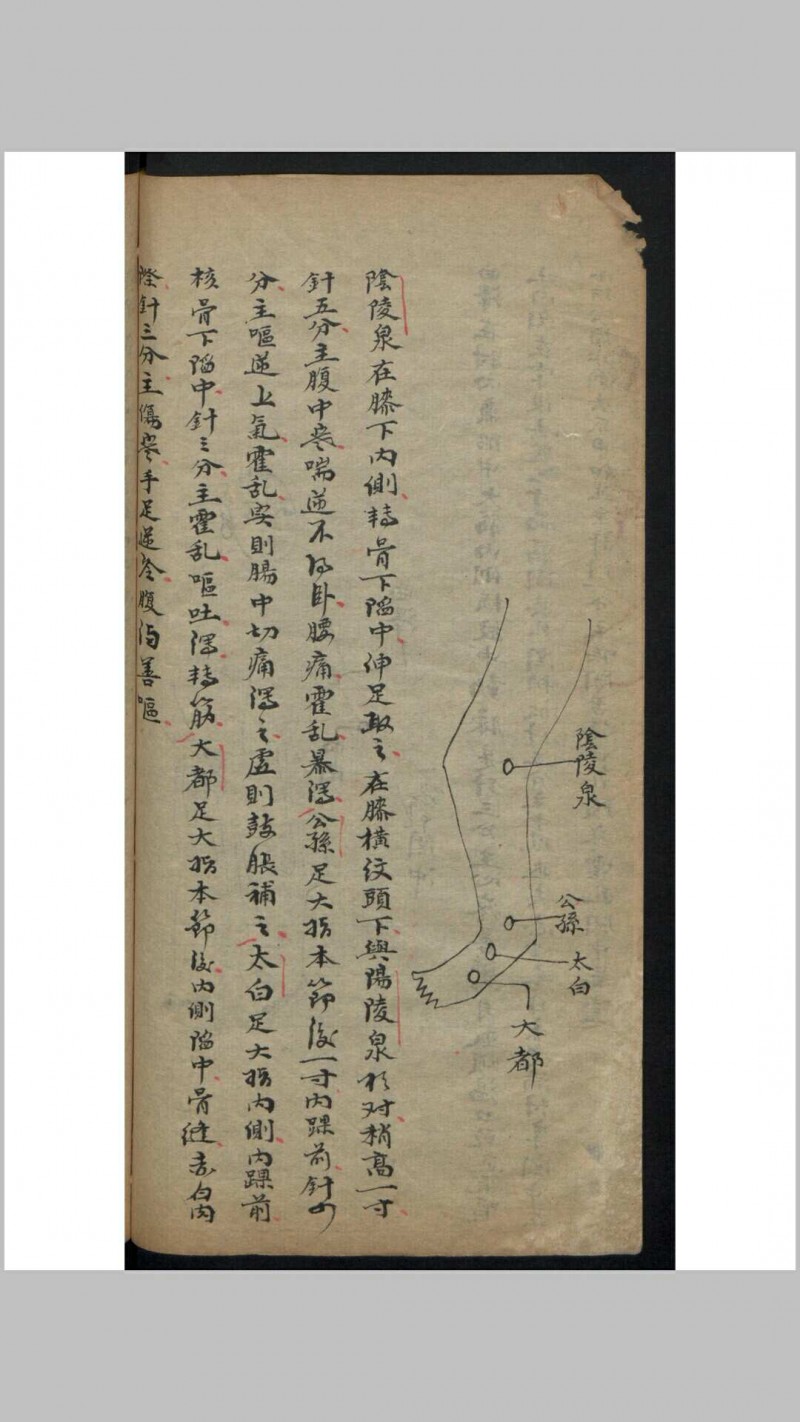 陰陵泉
公孫
太白
大都
陰陵泉在膝下內側轉骨下陷中伸足取之在膝橫紋頭下與陽陵泉相对稍高一寸
針五分主腹中寒喘逆不得卧腰痛霍乱暴瀉公孫足大指本節後一寸內踝前針四
分主嘔逆上氣霍乱实則腸中切痛瀉之虛則鼓脹補之太白足大指內側內踝前
核骨下陷中針三分主霍乱嘔吐瀉轉筋大都足大指本節後內側陷中骨縫赤白肉
際針三分主傷寒手足逆冷腹満善嘔